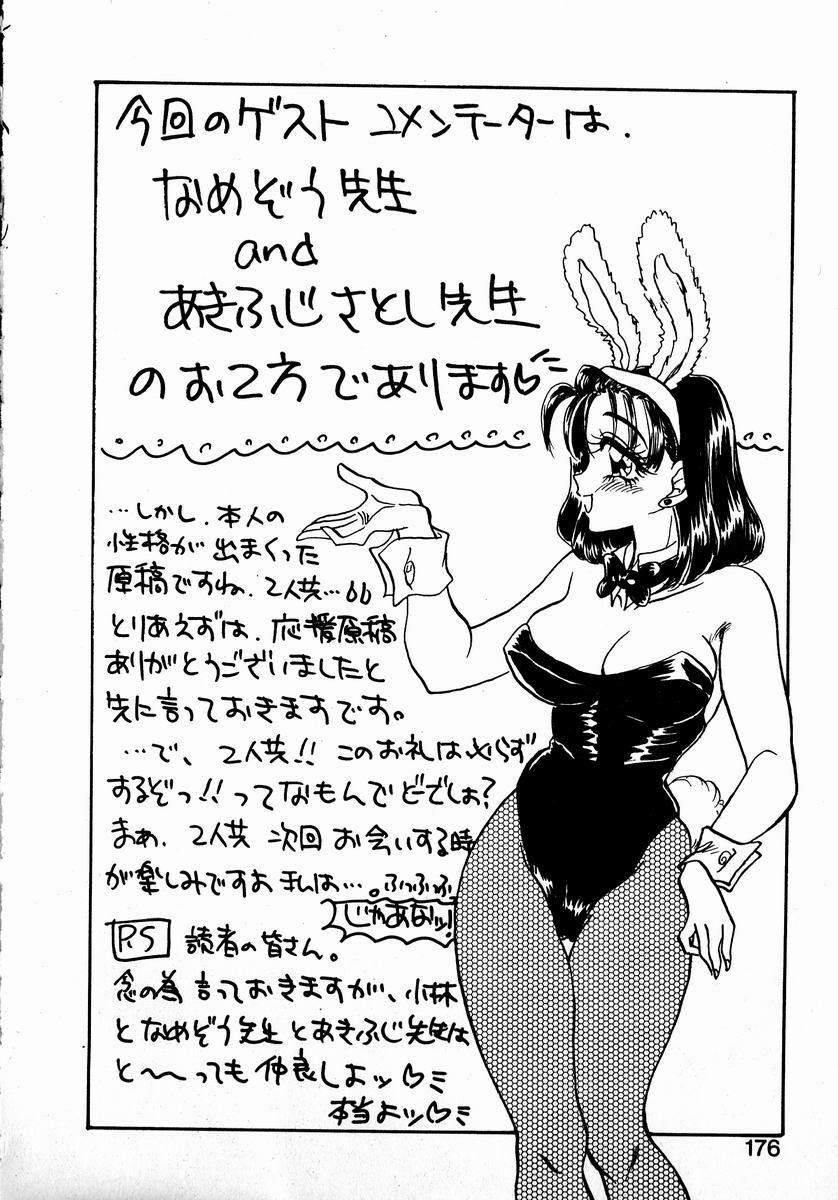 今回のゲスト コメンテーターは、
なめぞう先生
and
あきふじさとし先生
のお2方であります♡
…しかし、本人の
性格が出まくった
原稿ですね、2人共…
とりあえずは、応援原稿
ありがとうございましたと
先に言っておきますです。
…で、2人共!! このお礼は必らず
するぞっ!! ってなもんでどーでしょ?
まぁ、2人共 次回 お会いする時
が楽しみですよ まんは…。ふっふふ
じゃあなッ!
P.S 読者の皆さん。
念の為言っておきますが、小林
となめぞう先生とあきふじ先生は
と〜〜っても仲良しよッ♡
本当よッ♡
176